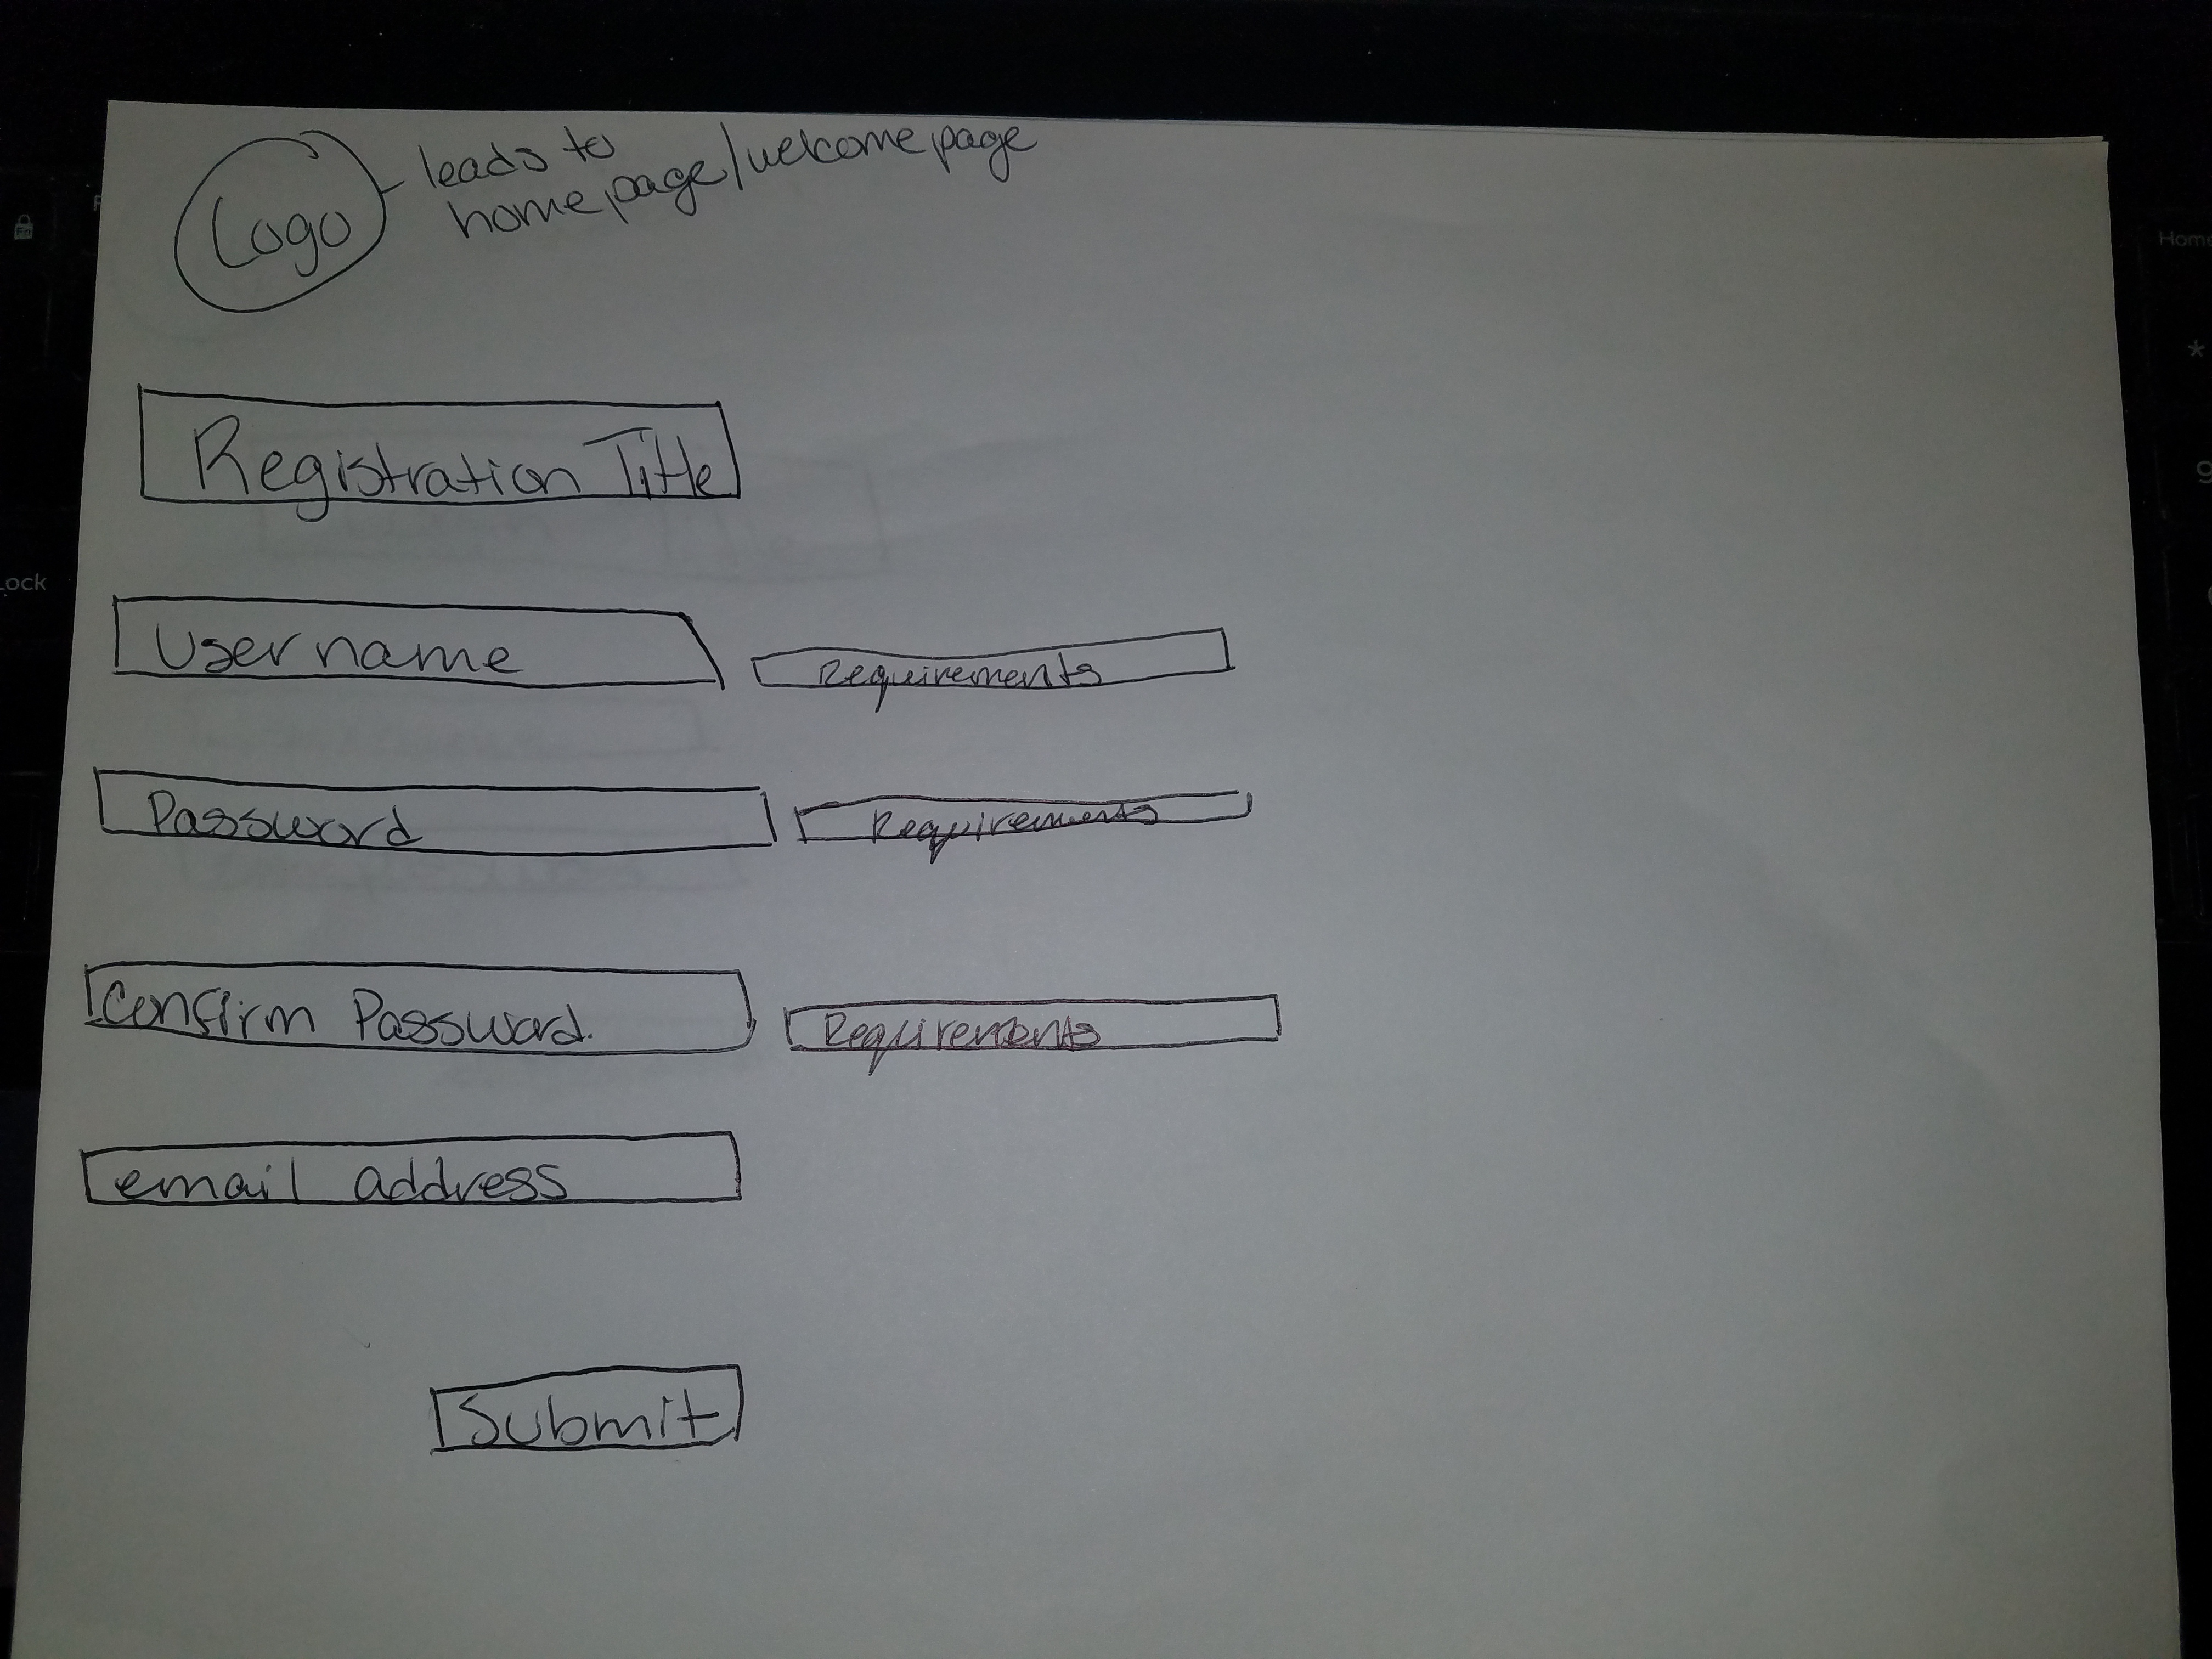 Logo
leads to
home page/welcome page
Registration Title
Username
Requirements
Password
Requirements
Confirm Password.
Requirements
email address
Submit
ock
Home
9
*